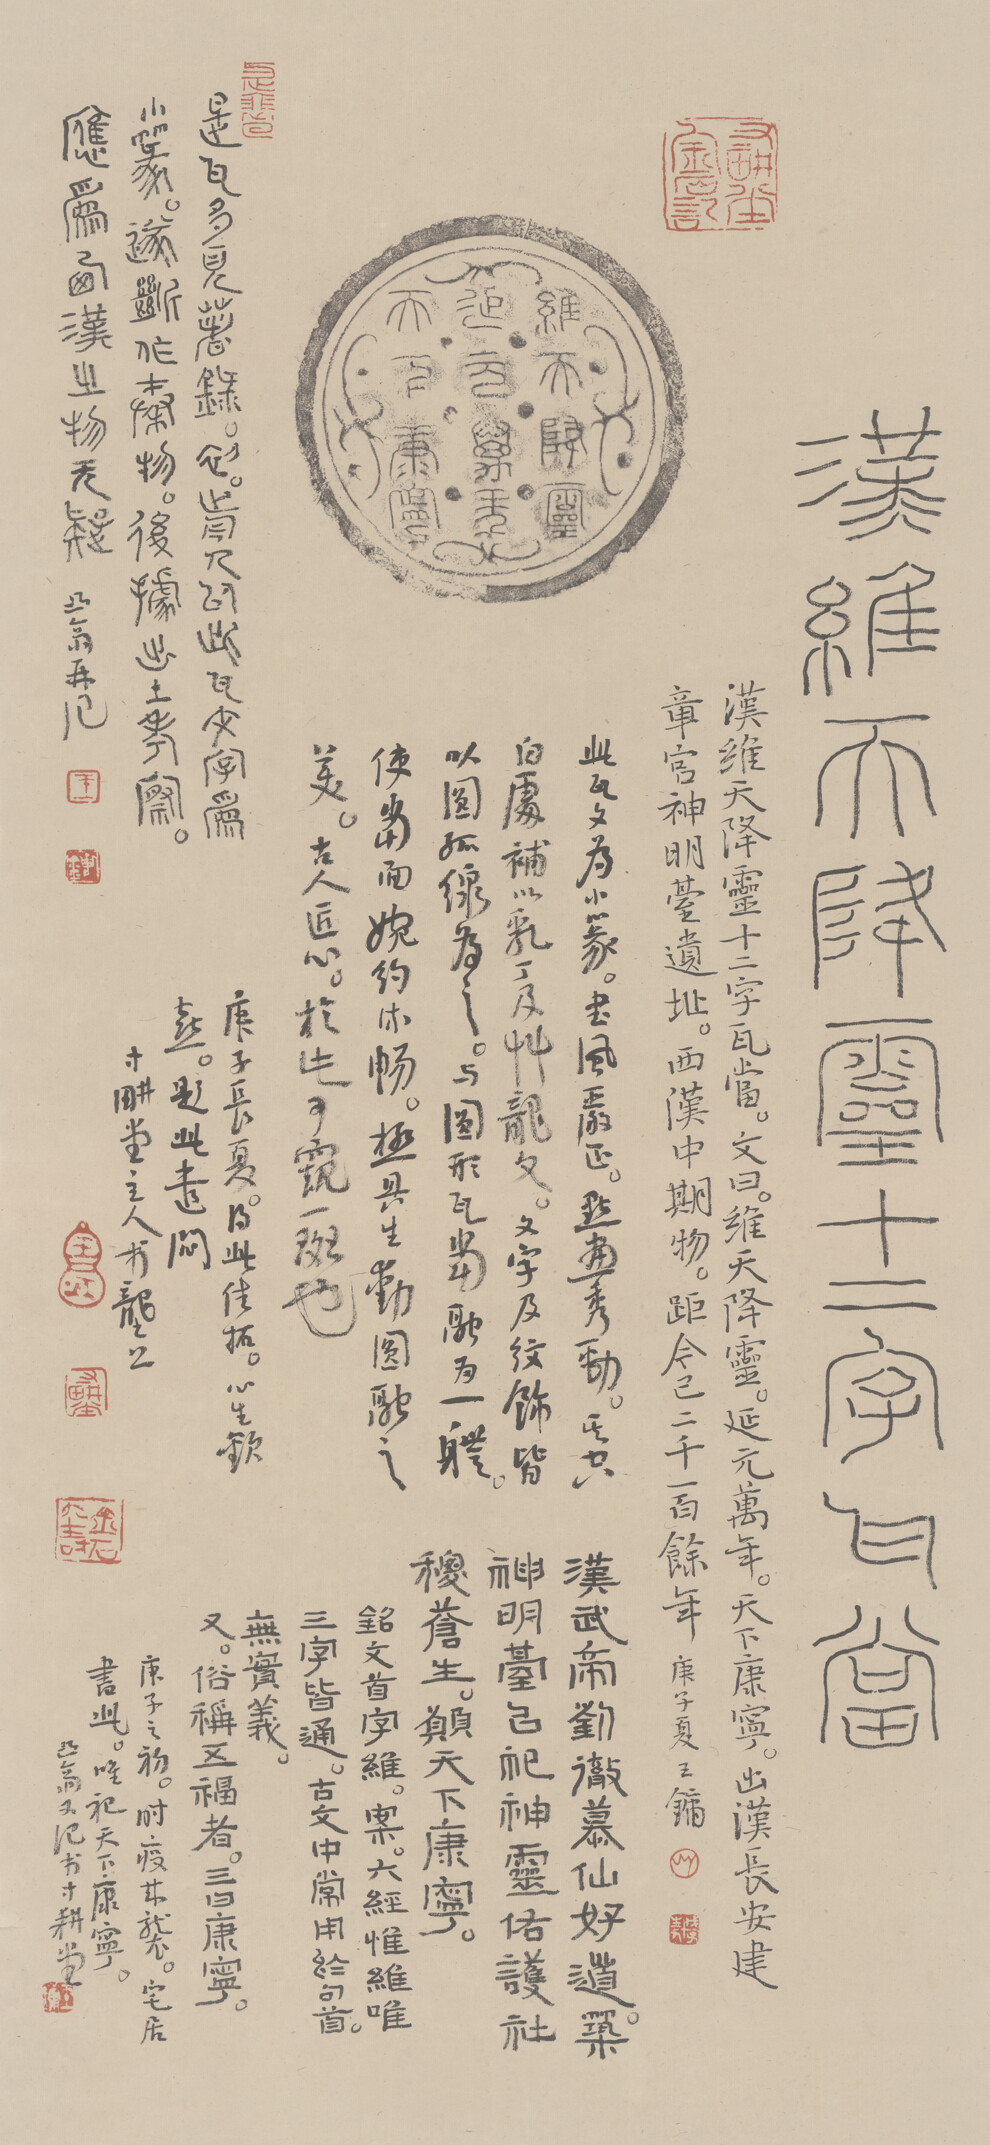 漢維天降靈十二字瓦當
漢維天降靈十二字瓦當。文曰。維天降靈。延元萬年。天下康寧。出漢長安建
章宮神明臺遺址。西漢中期物。距今已二千一百餘年 庚子夏王鏞
維天降靈
延元萬年
天下康寧
此瓦文為小篆。書風嚴正。點畫秀勁。其空
白處補以乳丁及艸龍文。文字及紋飾皆
以圓弧線為之。與圓形瓦當融為一體。
使當面婉約流暢。極具生動圓融之
美。古人匠心。於此可窺一斑也
漢武帝劉徹慕仙好道。築
神明臺以祀神靈佑護社
稷蒼生。願天下康寧。
銘文首字維。案。六經惟維唯
三字皆通。古文中常用於句首。
無實義。
又。俗稱五福者。三曰康寧。
庚子之初。時疫來襲。宅居
書此。唯祀天下康寧。
又記於寸耕堂
是瓦多見著錄。初。皆因此瓦文字為
小篆。遂斷作秦物。後據出土考察。
應為西漢之物无疑 再記
庚子長夏。得此佳拓。心生歡
喜。題此遣悶
寸耕堂主人於龍公